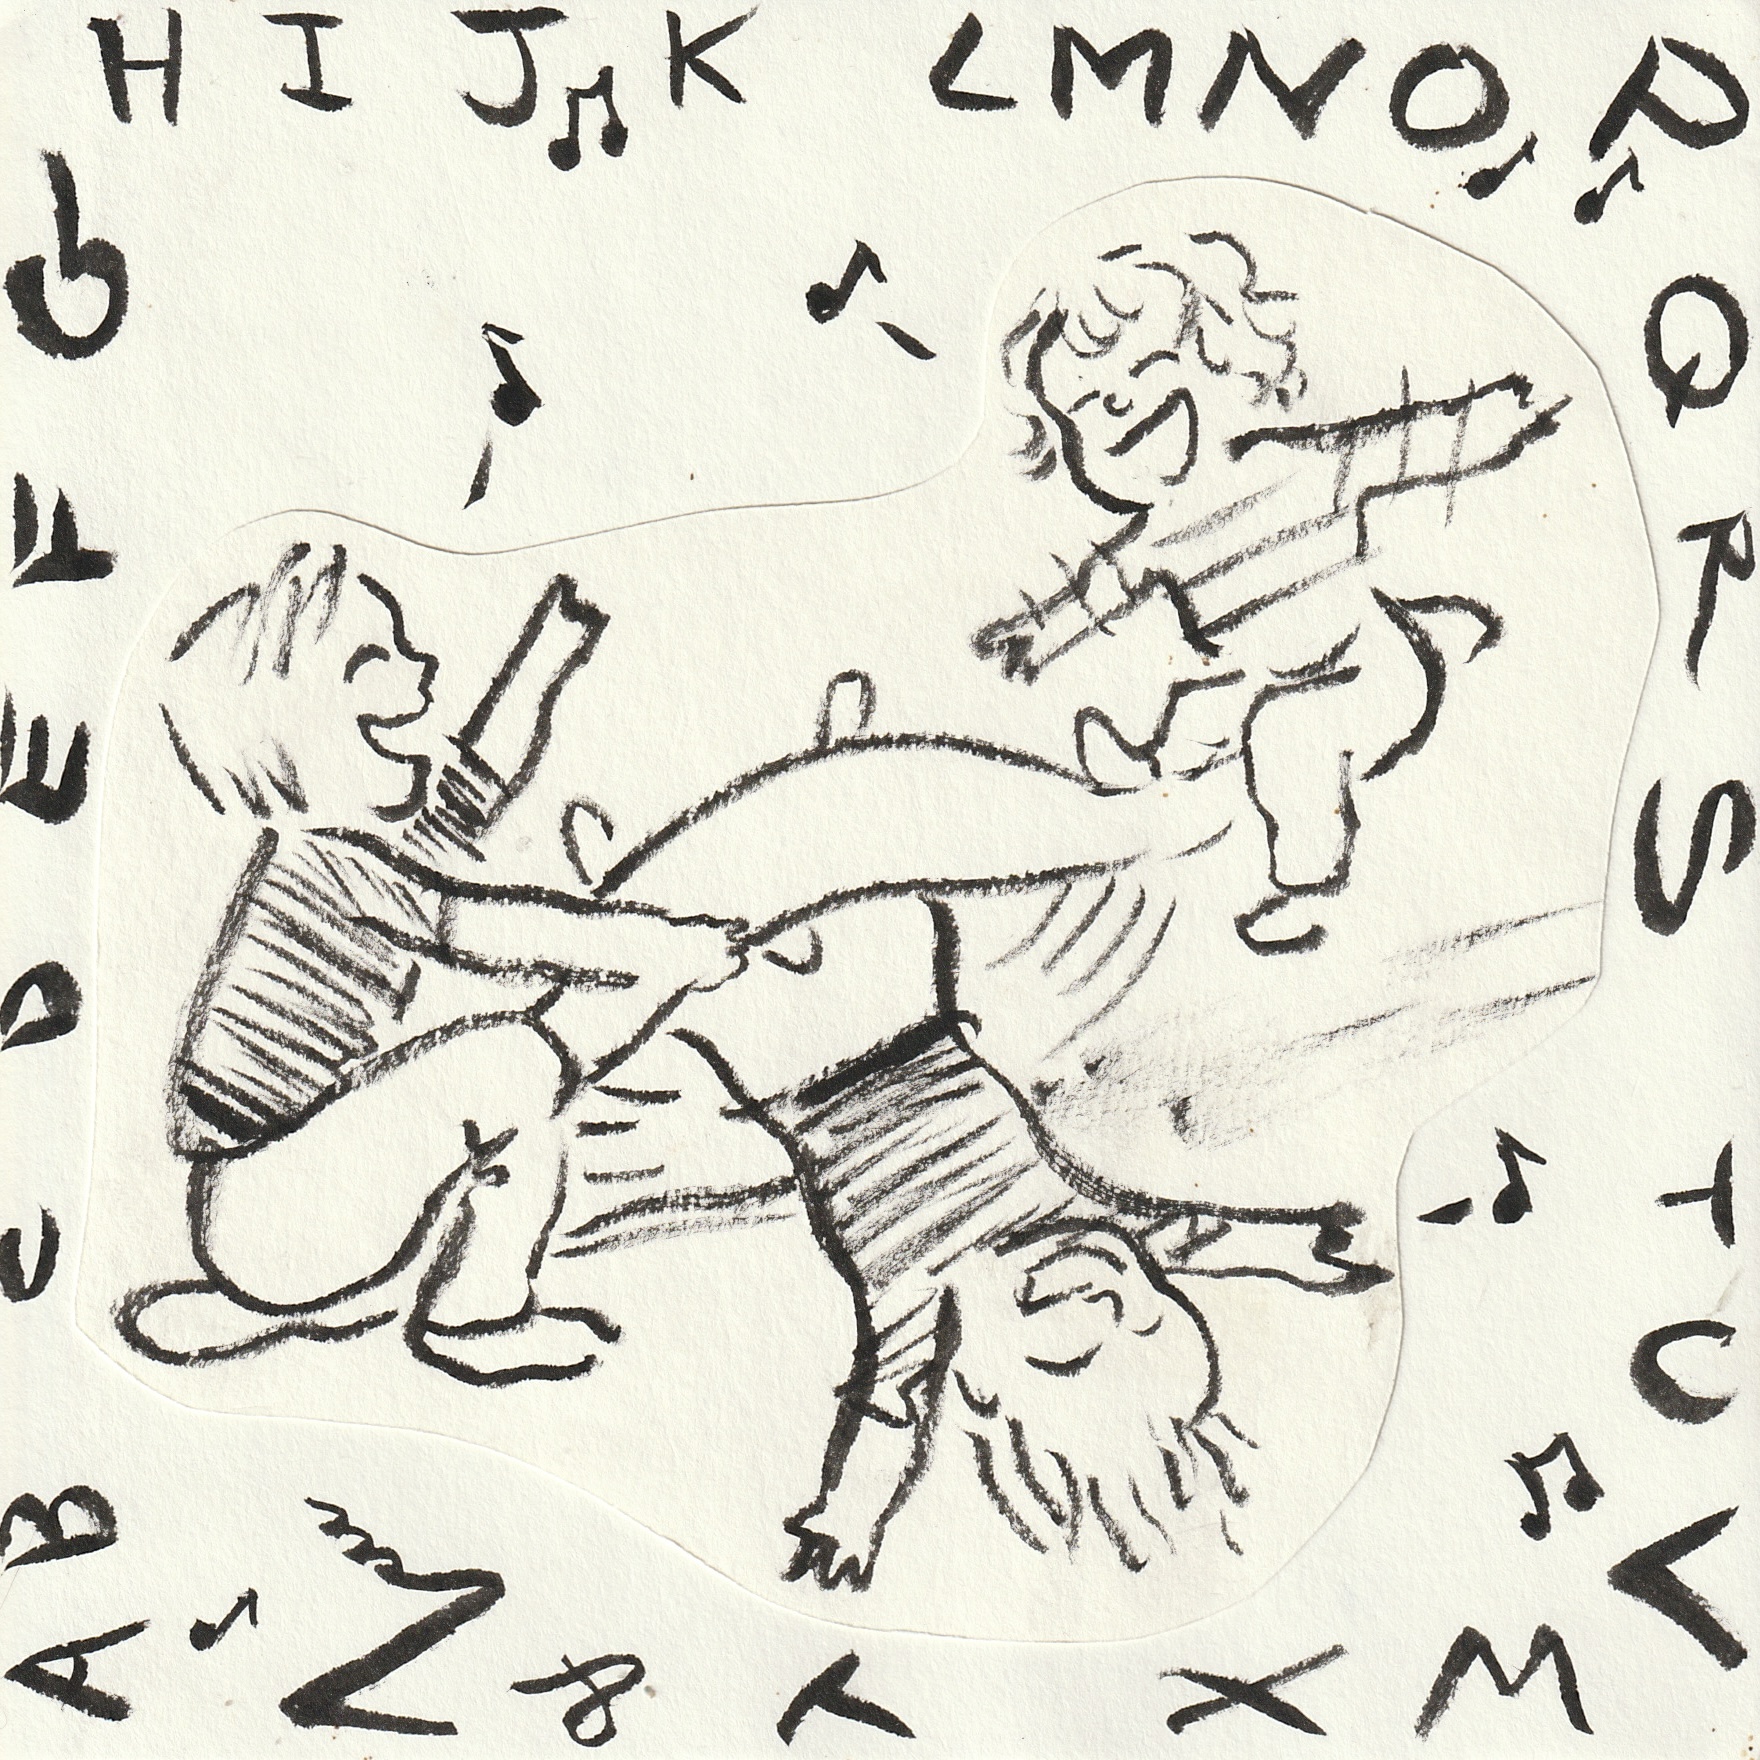 A B C D E F G
H I J K L M N O P
Q R S T U V
W X Y & Z